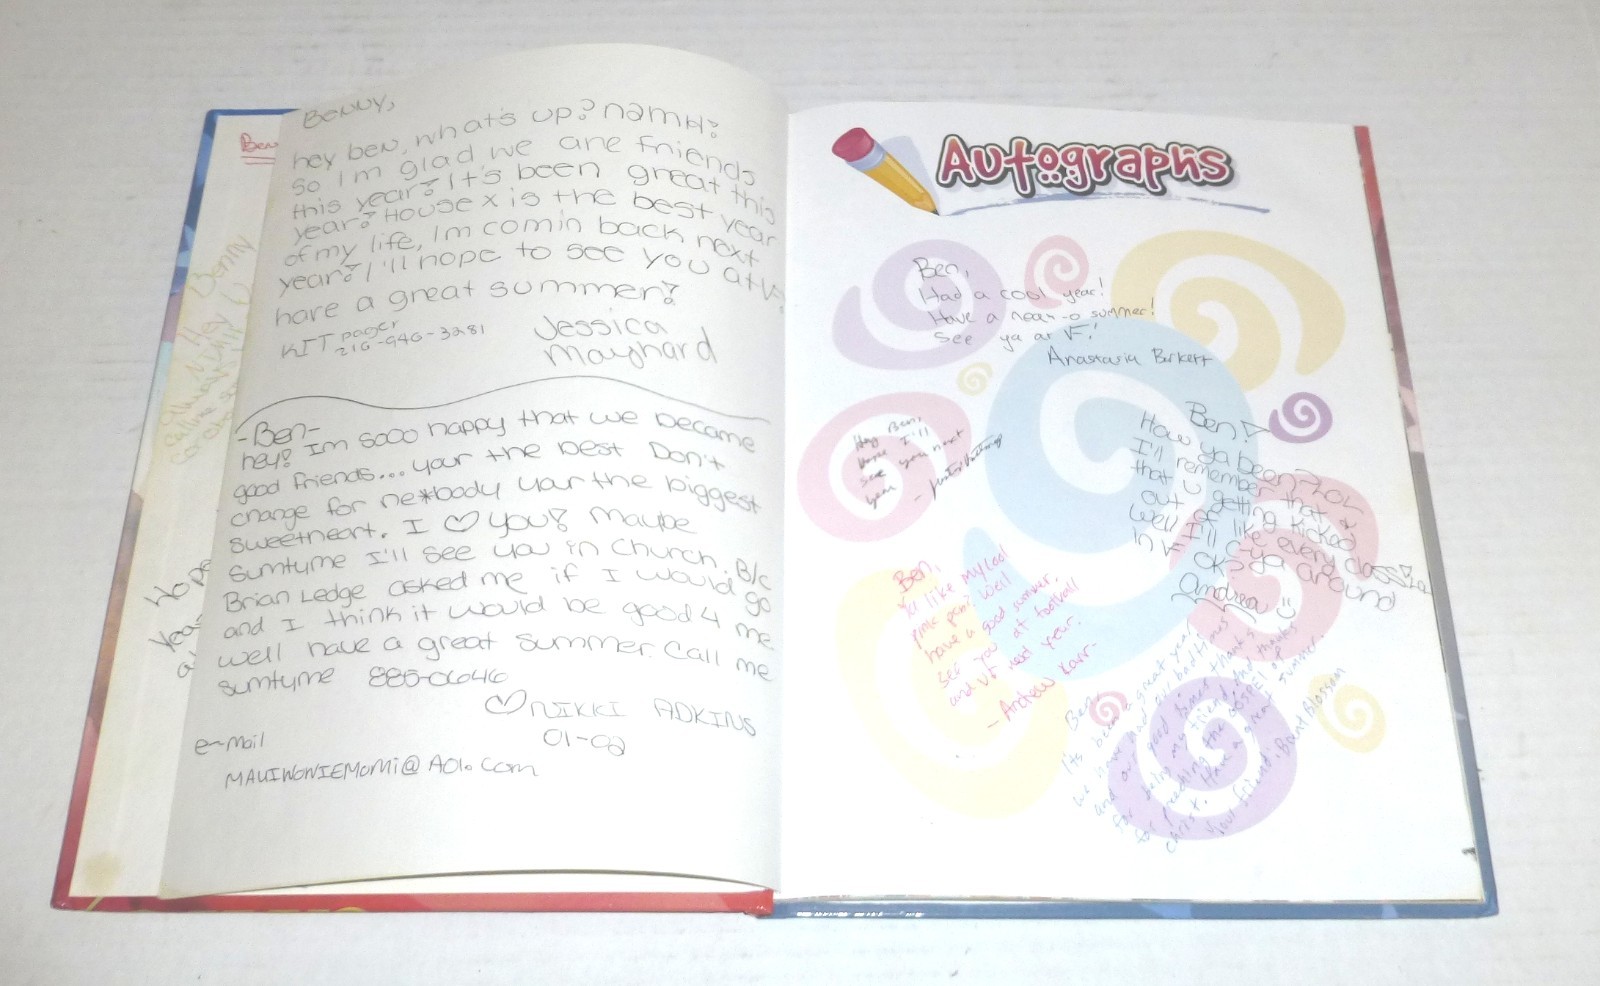 Ben
Benny
Benny,
hey ben, what's up? namH?
So Im glad we are friends
this year? It's been great this
year? House x is the best year
of my life, Im comin back next
year? I'll hope to see you at V
have a great summer?
KIT pager
216-946-3281
Jessica
Maynard
-Ben-
hey! Im sooo happy that we became
good friends... your the best Don't
change for ne*body your the biggest
sweetheart. I ♡ you! Maybe
sumtyme I'll see you in church. B/c
Brian Ledge asked me if I would go
and I think it would be good 4 me
well have a great summer. Call me
sumtyme 885-0646
♡NIKKI ADKINS
01-02
e-mail
MAUIWOWIEMOMI@AOl.com
Autographs
Ben,
Had a cool year!
Have a neat-o summer!
See ya at VF!
Anastasia Burkett
Hey Ben,
Hope I'll
see you next
year
Ben!
How ya been?
I'll remember that
that u getting
out of getting kicked
Well I'll like every class
in VF ok? ya around
Andrea
Ben,
Ya like my cool
pink pen? Well
have a good summer.
See you at football
and VF next year.
- Andrew Karr-
Ben,
Its been a great year
we have had our bad times
and our good times thanks
for being my friend and thanks
for preaching the gospel of
christ. Have a great summer.
Your friend, Brand Blossom